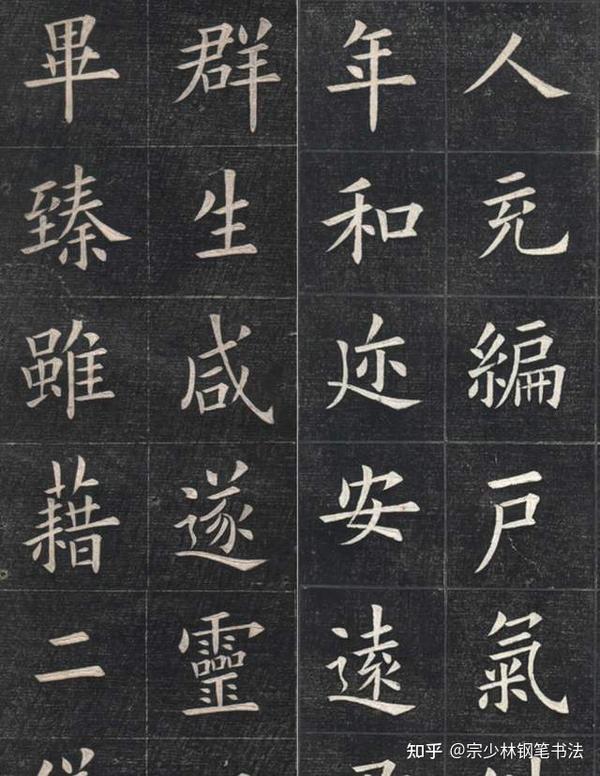 人充編戸氣
年和迩安遠
群生咸遂靈
畢臻雖藉二
知乎 @宗少林钢笔书法